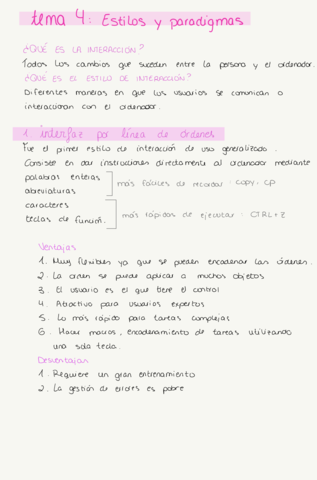 tema 4: Estilos y paradigmas
¿QUÉ ES LA INTERACCIÓN?
Todos los cambios que suceden entre la persona y el ordenador.
¿QUÉ ES EL ESTILO DE INTERACCIÓN?
Diferentes maneras en que los usuarios se comunican o
interaccionan con el ordenador.
1. interfaz por línea de órdenes
Fue el primer estilo de interacción de uso generalizado.
Consiste en dar instrucciones directamente al ordenador mediante
palabras enteras
abreviaturas
más fáciles de recordar: copy, cp
caracteres
teclas de función.
más rápidos de ejecutar: CTRL+Z
Ventajas
1. Muy flexibles ya que se pueden encadenar las órdenes.
2. La orden se puede aplicar a muchos objetos
3. El usuario es el que tiene el control
4. Atractivo para usuarios expertos
5. Lo más rápido para tareas complejas
6. Hacer macros, encadenamiento de tareas utilizando
una sola tecla.
Desventajas
1. Requiere un gran entrenamiento
2. La gestión de errores es pobre